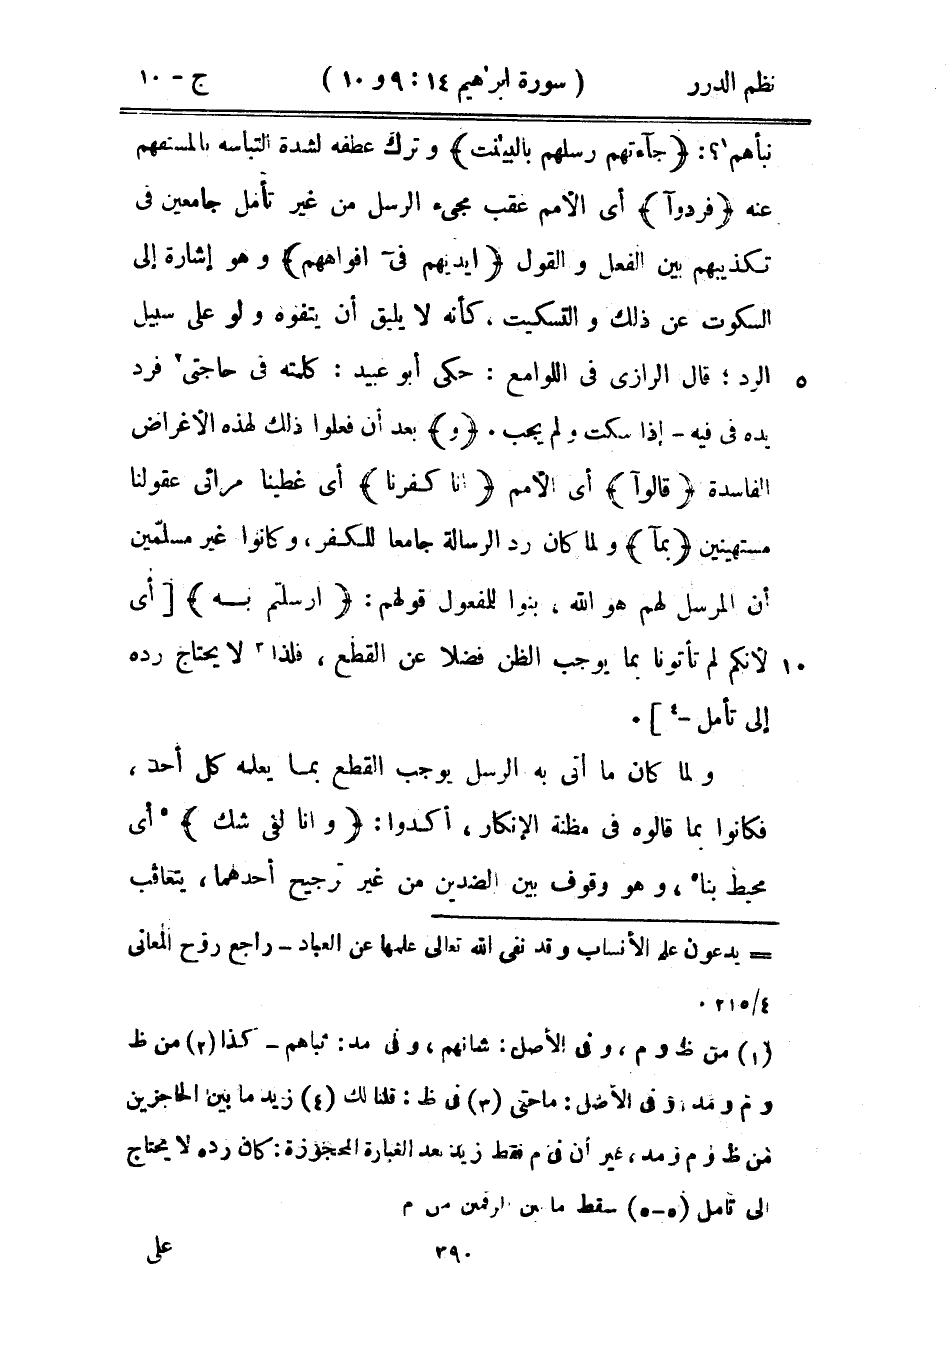 نظم الدرر ( سورة ابرٰهيم ١٤ : ٩ و ١٠ ) ج - ١٠
نبأهم١؟ : ﴿ جآءتهم رسلهم بالبينٰت ﴾ و ترك عطفه لشدة التباسه بالمستفهم
عنه ﴿ فردوآ ﴾ أى الأمم عقب مجىء الرسل من غير تأمل جامعين فى
تكذيبهم بين الفعل و القول ﴿ ايديهم فىٓ افواههم ﴾ و هو إشارة إلى
السكوت عن ذلك و التسكيت ، كأنه لا يليق أن يتفوه و لو على سبيل
الرد ؛ قال الرازى فى اللوامع : حكى أبو عبيد : كلمته فى حاجتى٢ فرد ٥
يده فى فيه – إذا سكت و لم يجب . ﴿ و ﴾ بعد أن فعلوا ذلك لهذه الأغراض
الفاسدة ﴿ قالوآ ﴾ أى الأمم ﴿ انا كفرنا ﴾ أى غطينا مرائى عقولنا
مستهينين ﴿ بمآ ﴾ و لما كان رد الرسالة جامعا للكفر ، و كانوا غير مسلّمين
أن المرسل لهم هو الله ، بنوا للمفعول قولهم : ﴿ ارسلتم به ﴾ [ أى
لأنكم لم تأتونا بما يوجب الظن فضلا عن القطع ، فلذا٣ لا يحتاج رده ١٠
إلى تأمل -٤ ] .
و لما كان ما أتى به الرسل يوجب القطع بما يعلمه كل أحد ،
فكانوا بما قالوه فى مظنة الإنكار ، أكدوا : ﴿ و انا لفى شك ﴾ ٥أى
محيط بنا٥ ، و هو وقوف بين الضدين من غير ترجيح أحدهما ، يتعاقب
= يدعون علم الأنساب و قد نفى الله تعالى علمها عن العباد – راجع روح المعانى
٤/٢١٥ .
(١) من ظ و م ، و فى الأصل : شانهم ، و فى مد : نباهم – كذا (٢) من ظ
و م و مد ، و فى الأصل : ماحتى (٣) فى ظ : قلنا لك (٤) زيد ما بين الحاجزين
من ظ و م و مد ، غير أن فى م فقط زيد بعد العبارة المحجوزة : كان رده لا يحتاج
الى تامل (٥-٥) سقط ما بين الرقمين من م
٣٩٠ على